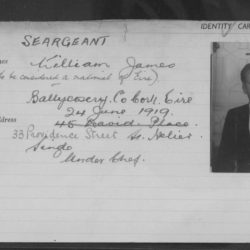 IDENTITY CAR
SEARGEANT
William James
(to be considered a national of Eire)
Ballycovery. Co Cork. Eire
24 June 1919.
dress
45 David Place.
33 Providence Street St. Helier.
Single
Under Chef.